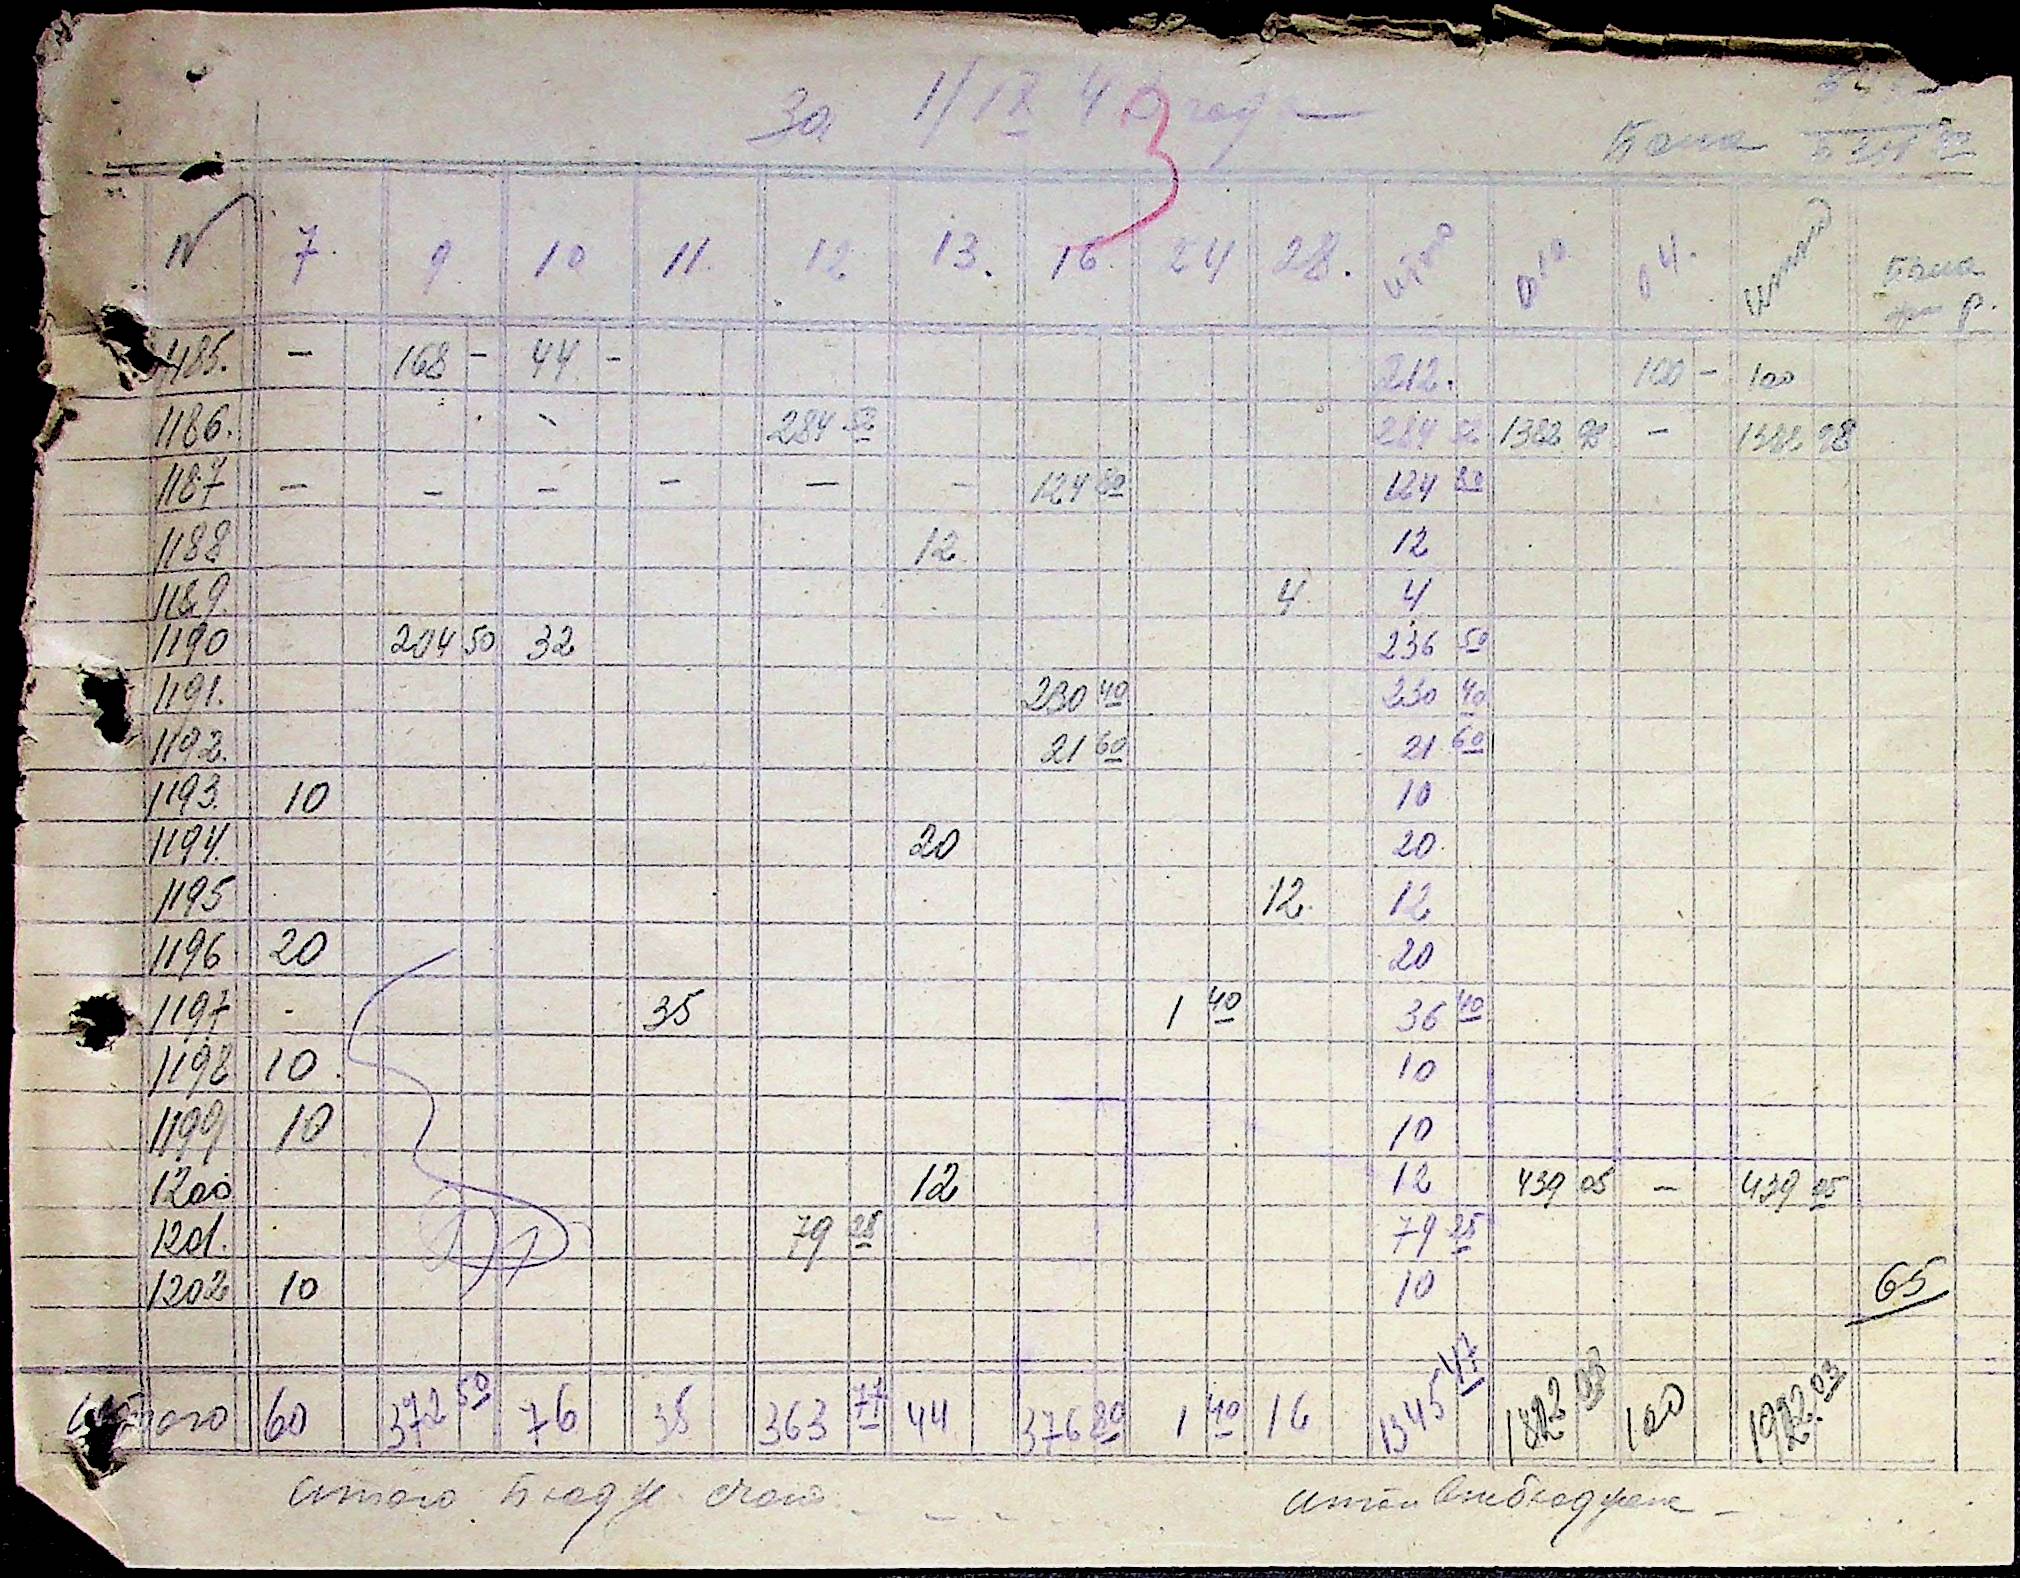 За 1/IX 43 года
Бана
N 7. 9 10 11. 12 13. 16 24 28. итого 010 04. итого Бана
р.
1185. - 168 - 44 - 212. 100 - 100
1186. 284 52 284 52 1382 98 - 1382 98
1187 - - - - - - 124 80 124 80
1188 12 12
1189. 4 4
1190 204 50 32 236 50
1191. 230 40 230 40
1192. 21 60 21 60
1193. 10 10
1194. 20 20
1195 12 12
1196 20 20
1197 - 35 1 40 36 40
1198 10 10
1199 10 10
1200 12 12 439 05 - 439 05
1201. 79 25 79 25
1202 10 10 65
Итого 60 372 50 76 35 363 77 44 376 80 1 40 16 1345 47 1822 03 100 1922.03
Итого Бюдж. счета